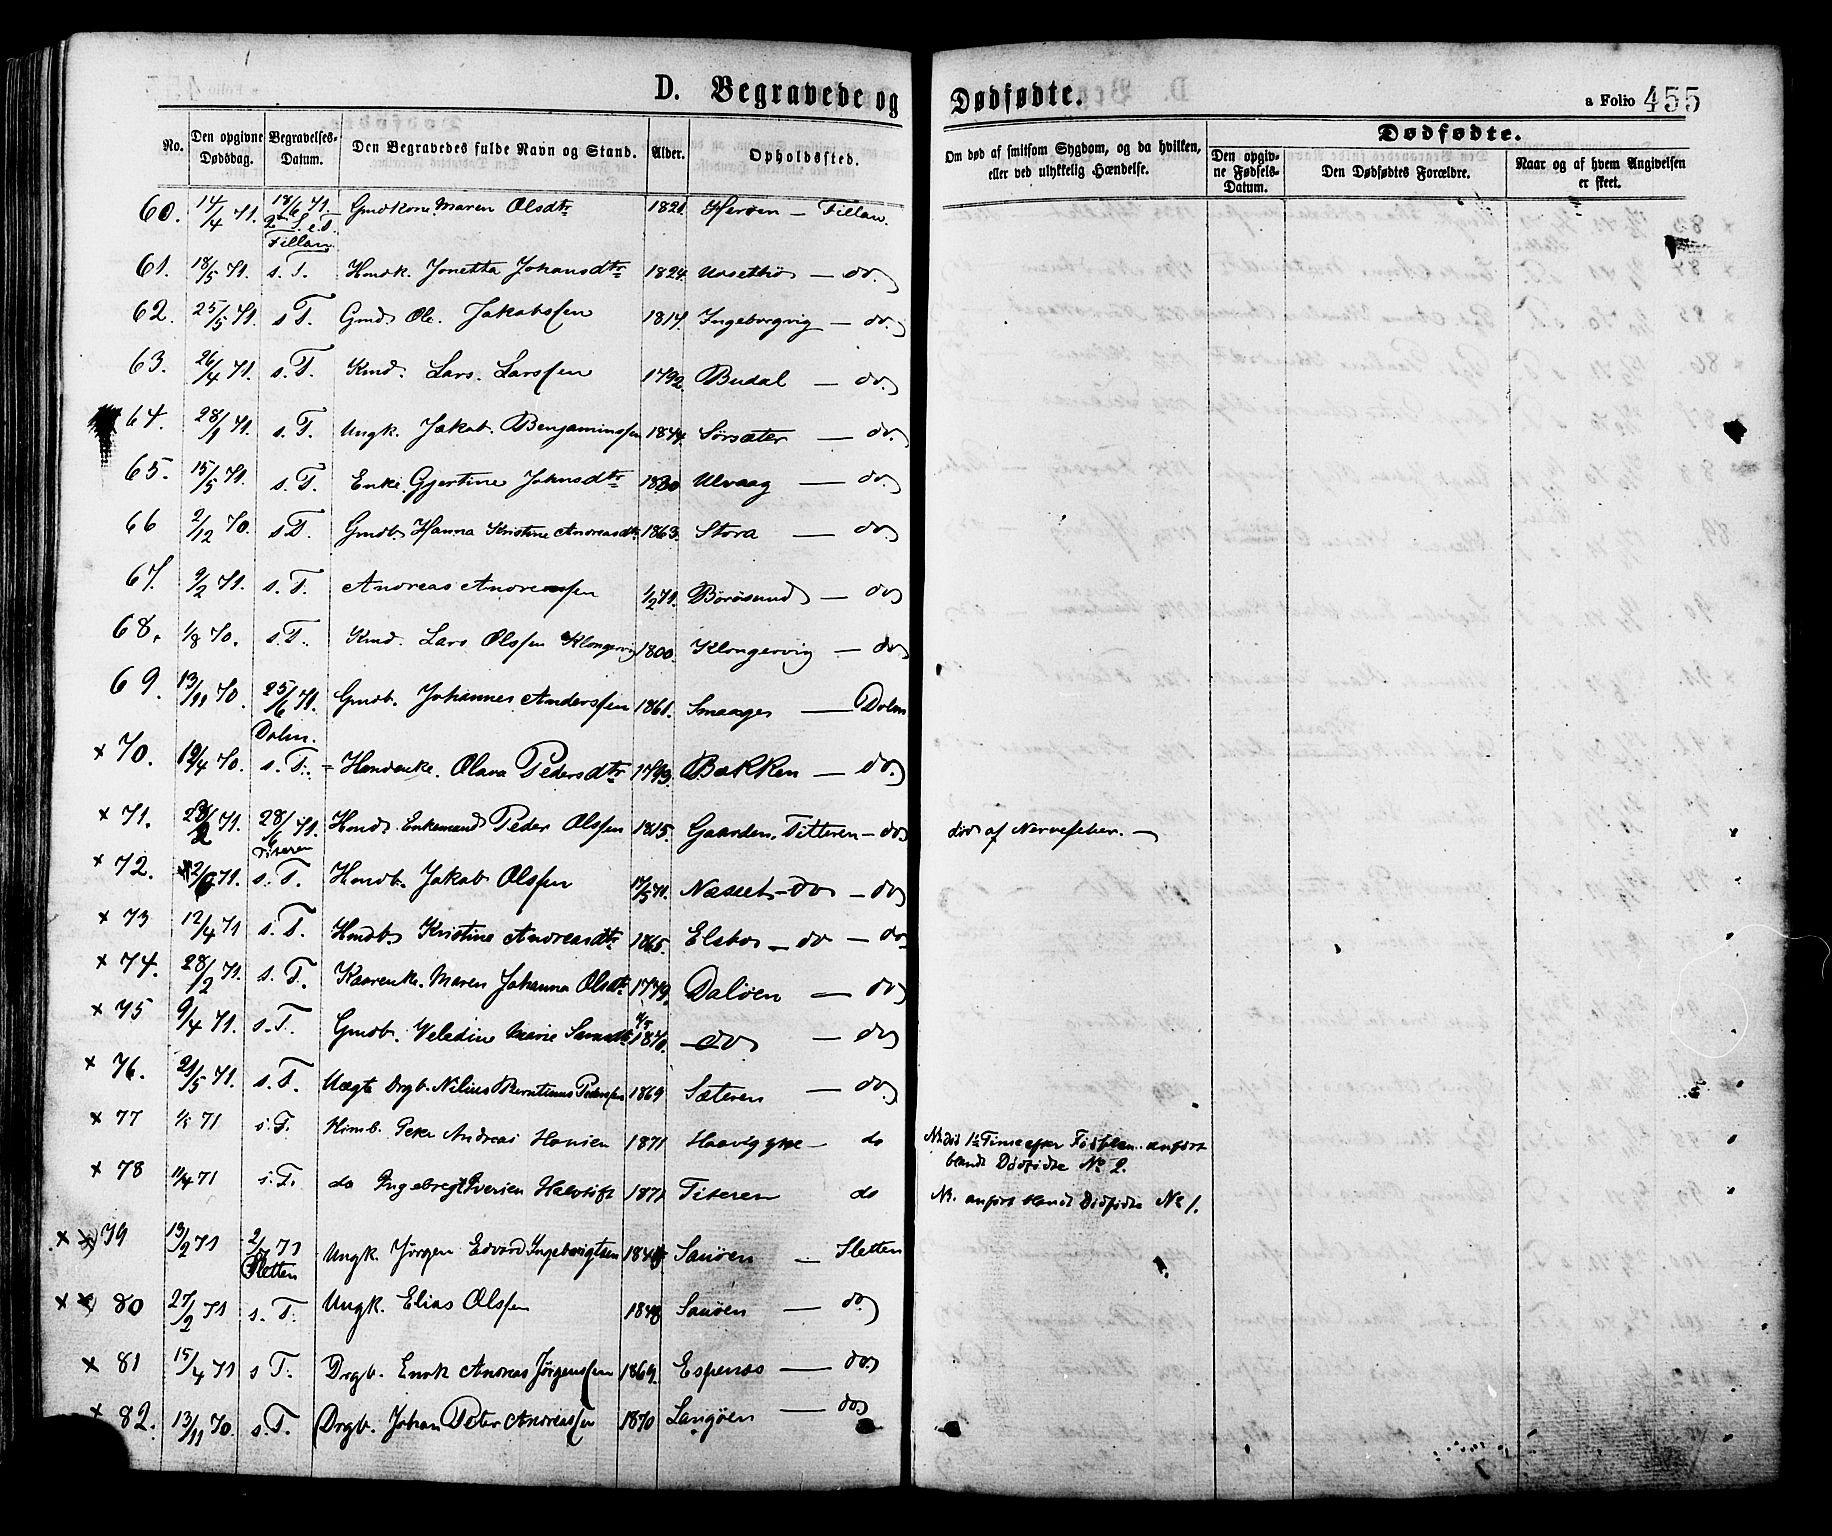 D. Begravede og Dødfødte. a Folio 455
No. Den opgivne Dødsdag. Begravelses-Datum. Den Begravedes fulde Navn og Stand. Alder. Opholdssted. Om død af smitsom Sygdom, og da hvilken, eller ved ulykkelig Hændelse. Den opgivne Fødsels-Datum. Dødfødte. Den Dødfødtes Forældre. Naar og af hvem Angivelsen er skeet.
60. 14/4 71. 18/6 71. 2 S. e. T. Fillan Gmdkone Maren Olsdtr 1821. Herøen — Fillan.
61. 18/5 71. s. T. Hmdk. Jonetta Johansdtr 1824. — do.
62. 25/5 71. s T. Gmd. Ole Jakobssen 1814. Ingeborgvig — do.
63. 26/4 71. s. T. Kmd. Lars Larssen 1792. Budal — do.
64. 28/1 71. s. T. Ungk. Jakob Benjaminssen 1844. Sørsæter — do.
65. 15/5 71. s. T. Enke. Gjertine Johnsdtr Ulvaag — do
66 2/12 70. s T. Gmdb. Hanna Kristine Andreasdtr 1863. Stora — do
67. 9/2 71. s. T. Andreas Andreassen 1/2 71. Borøsund — do
68. 1/8 70. s. T. Kmd. Lars Olssen Klongervig 1800. Klongervig — do
69. 13/11 70. 25/6 71. Dolm. Gmdb. Johannes Anderssen 1861. Smaage — Dolm
x 70. 19/4 70. s. T. Hmdenke. Olava Pedersdtr 1793. Bakken — do.
x 71. 71. 28/6 71. Titeren Hmd. Enkemand Peder Olssen 1815. Gaarden, Titteren — do død af Nervefeber. —
x 72. 2/6 71. s. T. Hmdb. Jakob Olssen 17/5 71. Næsset — do — do
x 73 12/4 71 s. T. Hmdb. Kristine Andreasdtr 1865. Elsbo — do — do
x 74. 28/2 71. s. T. Kaarenke. Maren Johanna Olsdtr 1779. Daløen — do
x 75 9/4 71. s. T. Gmdb. Veledine Marie 1870. — do — do
x 76. 21/5 71. s. T. Lægts Drgb. Nilius Berntinus Pederssen 1869 Sæteren — do
x 77 71 s. T. Himb. Peter Andreas Hansen 1871 — do NB. død 1½ Time efter Fødselen. anført
blandt Dødfødte No 2.
x 78 11/4 71 s. T. do Ingebrigt Iversen 1871 Titeren do NB. anført blandt Dødfødte No 1.
x x 79 13/2 71 2/7 71 Sletten Ungk. Jørgen Edvard Ingebrigtsen Sauøen — Sletten
x x 80 27/2 71 s. T. Ungk. Elias Olssen 1848 Sauøen — do
x 81 15/4 71 s T. Drgb. Enok Andreas Jørgenssen 1869. Espenæs — do
x 82. 13/11 70. s. T. Drgb. Johan Peter Andreassen 1870 Langøen — do